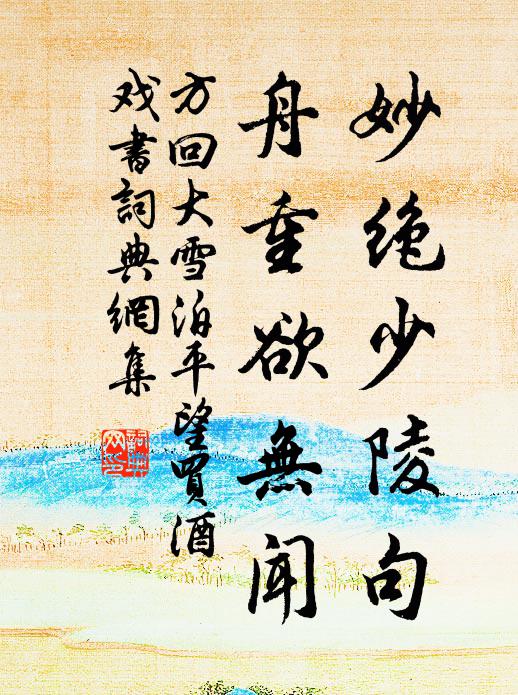 妙绝少陵句
舟重欲無聞
方回大雪泊平望買酒
戏書詞典網集